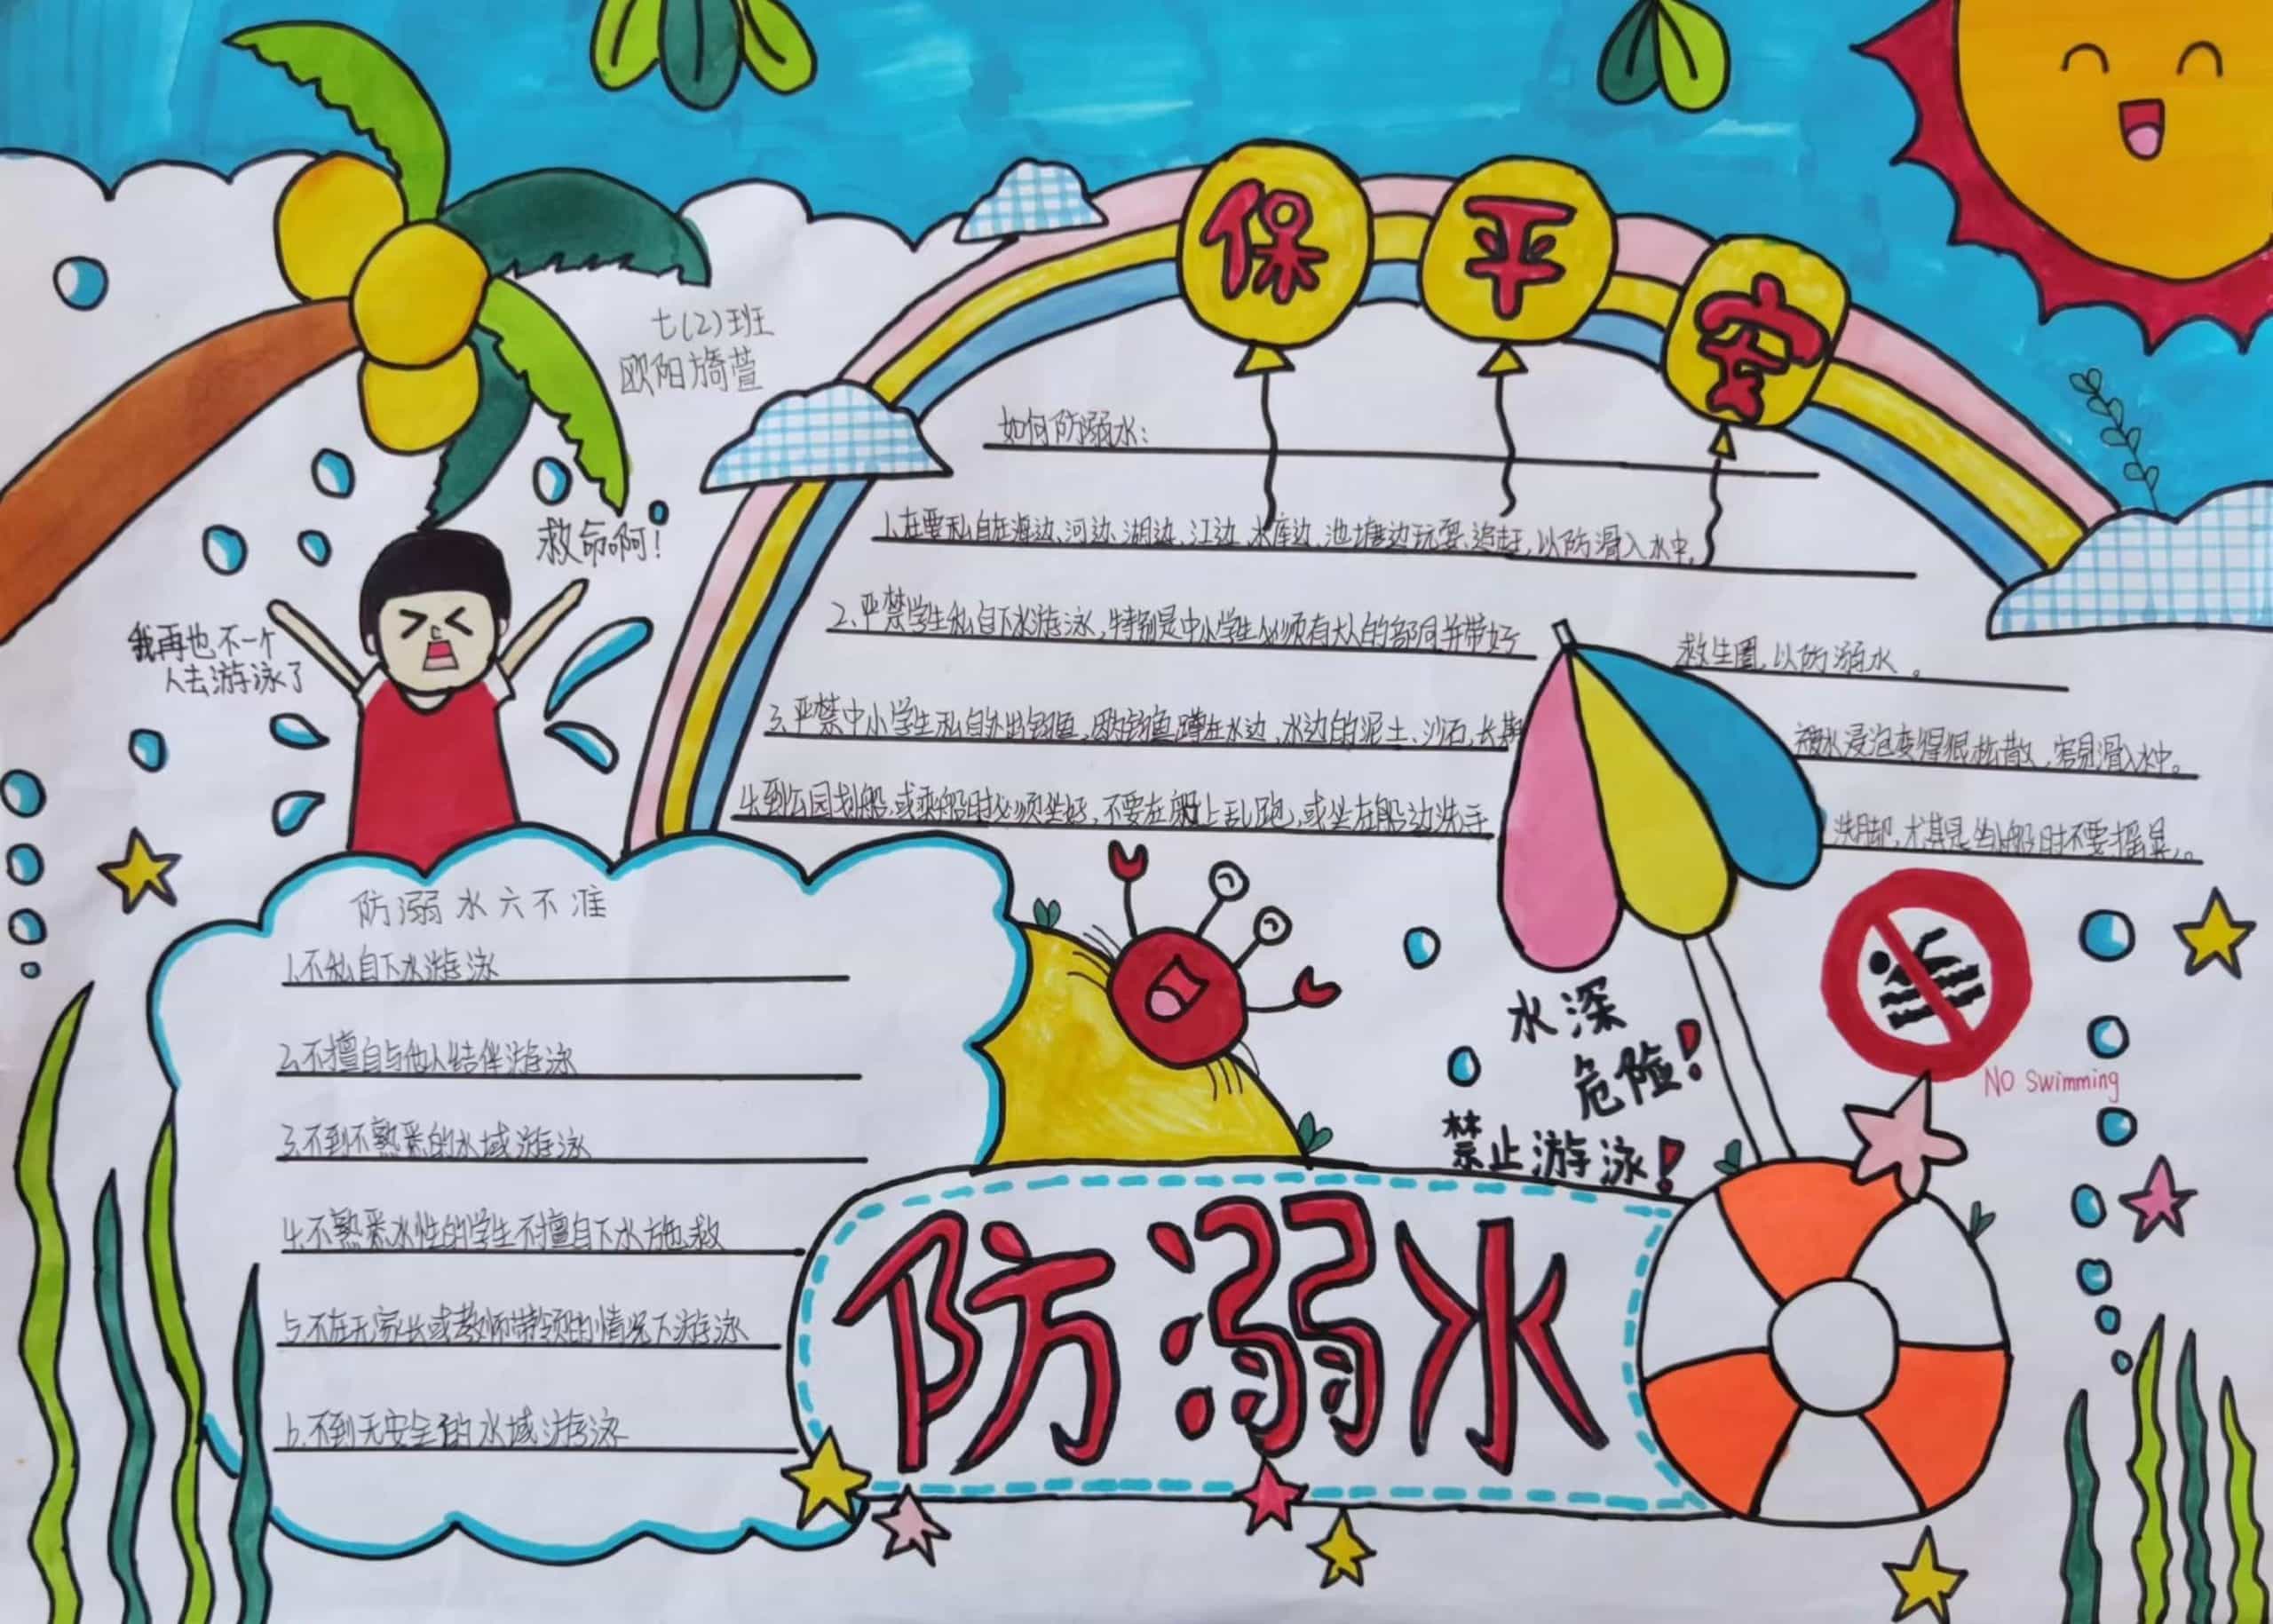 保平安
七(2)班
欧阳旖萱
如何防溺水:
救命啊!
1.在要私自在海边、河边、湖边、江边、水库边、池塘边玩耍、追赶,以防滑入水中.
2.严禁学生私自下水游泳,特别是中小学生必须有大人的部同并带好 救生圈,以防溺水。
我再也不一个
人去游泳了
3.严禁中小学生私自外出钓鱼,因钓鱼蹲在水边,水边的泥土、沙石,长期 被水浸泡变得很松散,容易滑入水中。
4.到公园划船,或乘船时必须坐好,不要在船上乱跑,或坐在船边洗手 洗脚,尤其是坐船时不要摇晃。
防溺水六不准
1.不私自下水游泳
2.不擅自与他人结伴游泳
3.不到不熟悉的水域游泳
4.不熟悉水性的学生不擅自下水施救
5.不在无家长或教师带领的情况下游泳
6.不到无安全的水域游泳
水深
危险!
禁止游泳!
NO swimming
防溺水